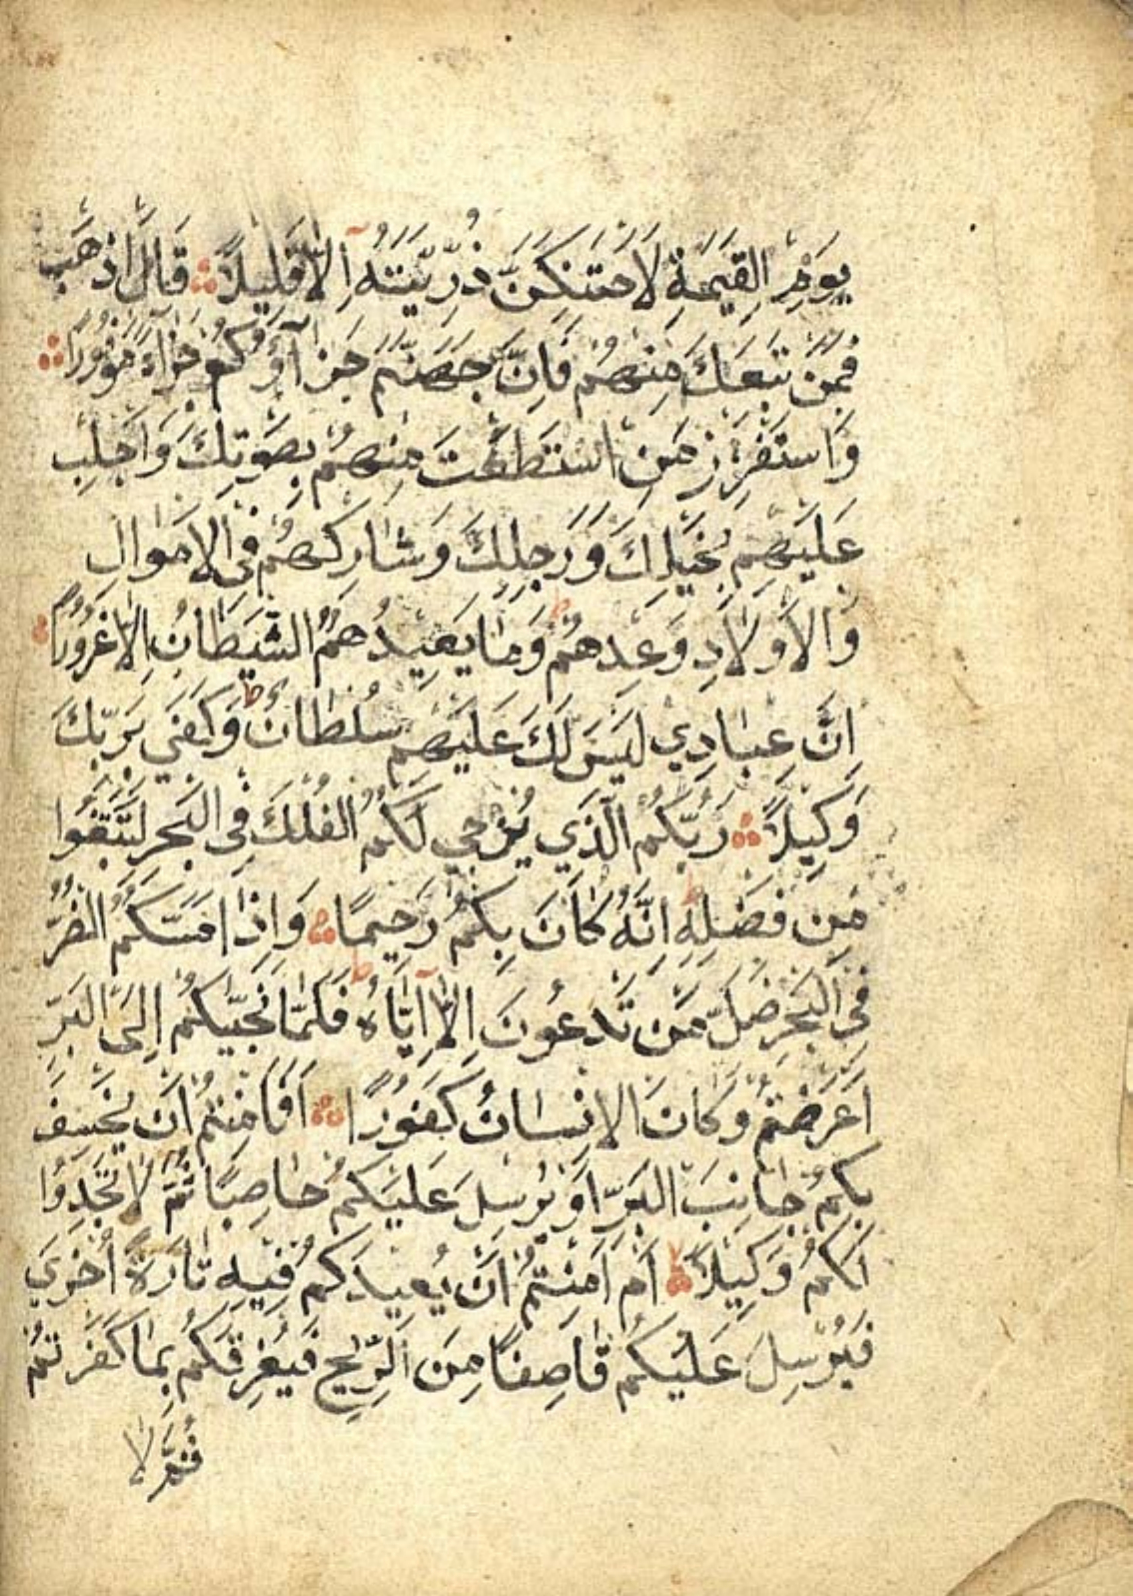 يَوْمِ الْقِيٰمَةِ لَاَحْتَنِكَنَّ ذُرِّيَّتَهُ اِلَّا قَلِيلًا قَالَ اذْهَبْ
فَمَنْ تَبِعَكَ مِنْهُمْ فَاِنَّ جَهَنَّمَ جَزَآؤُكُمْ جَزَاءً مَوْفُورًا
وَاسْتَفْزِزْ مَنِ اسْتَطَعْتَ مِنْهُمْ بِصَوْتِكَ وَاَجْلِبْ
عَلَيْهِمْ بِخَيْلِكَ وَرَجِلِكَ وَشَارِكْهُمْ فِى الْاَمْوَالِ
وَالْاَوْلَادِ وَعِدْهُمْ ط وَمَا يَعِدُهُمُ الشَّيْطَانُ اِلَّا غُرُورًا
اِنَّ عِبَادِي لَيْسَ لَكَ عَلَيْهِمْ سُلْطَانٌ ط وَكَفَى بِرَبِّكَ
وَكِيلًا رَبُّكُمُ الَّذِي يُزْجِي لَكُمُ الْفُلْكَ فِى الْبَحْرِ لِتَبْتَغُوا
مِنْ فَضْلِهِ ط اِنَّهُ كَانَ بِكُمْ رَحِيمًا وَاِذَا مَسَّكُمُ الضُّرُّ
فِى الْبَحْرِ ضَلَّ مَنْ تَدْعُونَ اِلَّا اِيَّاهُ ط فَلَمَّا نَجّٰيكُمْ اِلَى الْبَرِّ
اَعْرَضْتُمْ وَكَانَ الْاِنْسَانُ كَفُورًا اَفَاَمِنْتُمْ اَنْ يَخْسِفَ
بِكُمْ جَانِبَ الْبَرِّ اَوْ يُرْسِلَ عَلَيْكُمْ حَاصِبًا ثُمَّ لَا تَجِدُوا
لَكُمْ وَكِيلًا لا اَمْ اَمِنْتُمْ اَنْ يُعِيدَكُمْ فِيهِ تَارَةً اُخْرَى
فَيُرْسِلَ عَلَيْكُمْ قَاصِفًا مِنَ الرِّيحِ فَيُغْرِقَكُمْ بِمَا كَفَرْتُمْ
ثُمَّ لَا